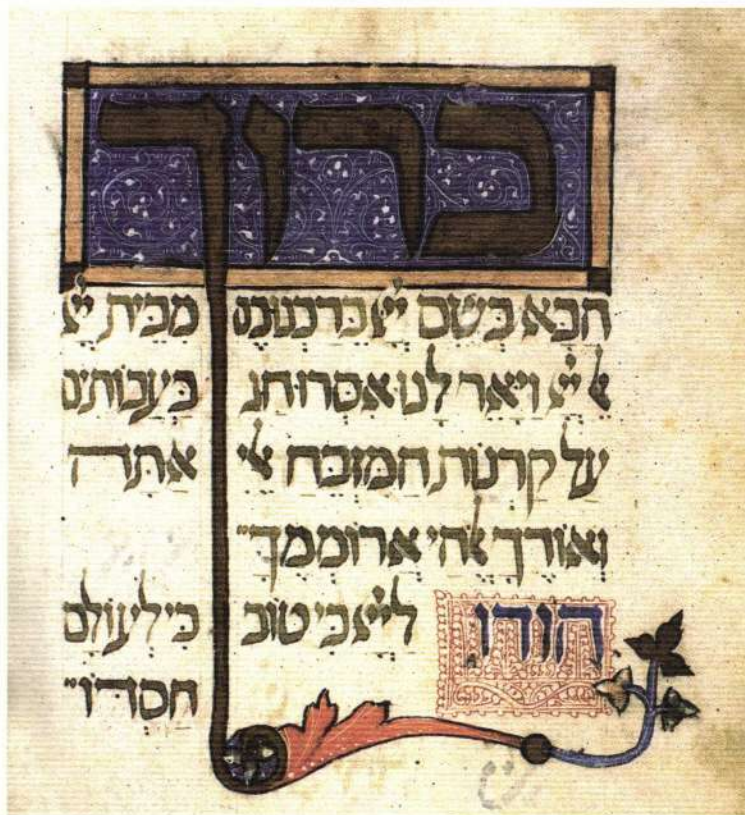 ברוך
הבא בשם ייי ברכנוכם מבית ייי
אל ייי ויאר לנו אסרו חג בעבותים
על קרנות המזבח אלי אתה
ואודך אלהי ארוממך
הודו לייי כי טוב כי לעולם
חסדו